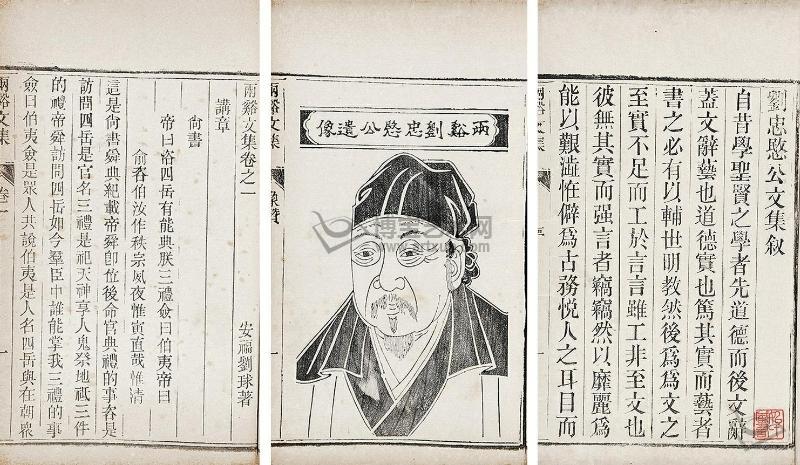 劉忠愍公文集叙
自昔學聖賢之學者先道德而後文辭
蓋文辭藝也道德實也篤其實而藝者
書之必有以輔世明教然後爲爲文之
至實不足而工於言言雖工非至文也
彼無其實而强言者竊竊然以靡麗爲
能以艱澁怪僻爲古務悅人之耳目而
兩谿文集
兩谿劉忠愍公遺像
兩谿文集 像贊
兩谿文集卷之一
安福劉球著
講章
尙書
帝曰咨四岳有能典朕三禮僉曰伯夷帝曰
俞咨伯汝作秩宗夙夜惟寅直哉惟清
這是尙書舜典紀載帝舜卽位後命官典禮的事咨是
訪問四岳是官名三禮是祀天神享人鬼祭地祇三件
的禮帝舜訪問四岳如今羣臣中誰能掌我三禮的事
僉曰伯夷僉是眾人共說伯夷是人名四岳與在朝衆
兩谿文集 卷一 一